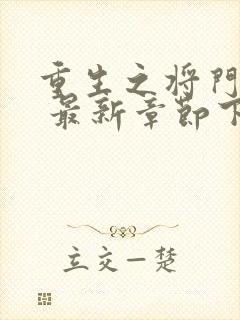 重生之将门
最新章节下
立交一楚